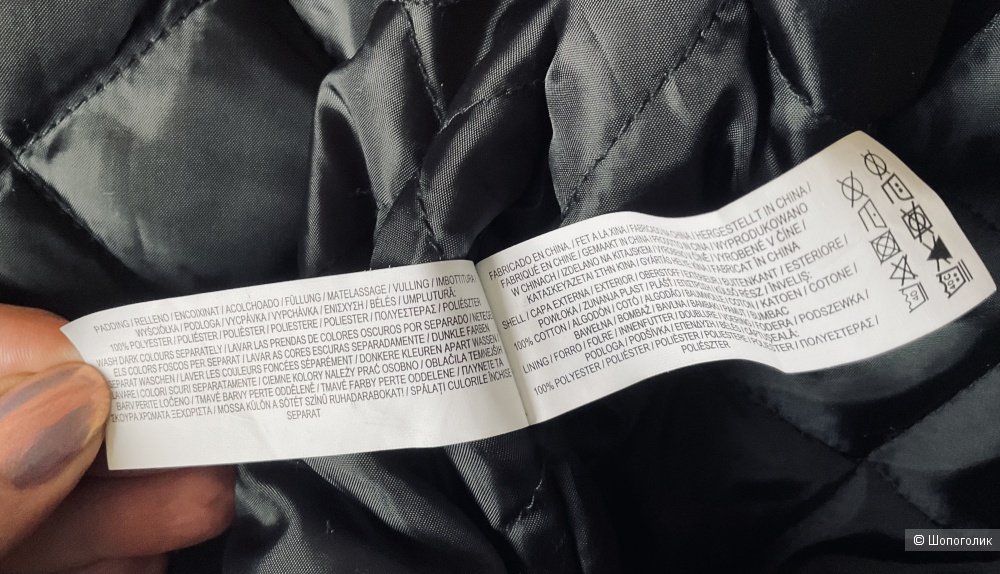 PADDING / RELLENO / ENCOIXINAT / ACOLCHOADO / FÜLLUNG / MATELASSAGE / VULLING / IMBOTTITURA
WYŚCIÓŁKA / PODLOGA / VYCPÁVKA / VYPCHÁVKA / ΕΝΙΣΧΥΣΗ / BÉLÉS / UMPLUTURĂ:
100% POLYESTER / POLIÉSTER / POLIÈSTER / POLIESTERE / POLIESTER / ΠΟΛΥΕΣΤΕΡΑΣ / POLIÉSZTER
WASH DARK COLOURS SEPARATELY / LAVAR LAS PRENDAS DE COLORES OSCUROS POR SEPARADO / NETEGEU
ELS COLORS FOSCOS PER SEPARAT / LAVAR AS CORES ESCURAS SEPARADAMENTE / DUNKLE FARBEN
SEPARAT WASCHEN / LAVER LES COULEURS FONCÉES SEPARÉMENT / DONKERE KLEUREN APART WASSEN /
LAVARE I COLORI SCURI SEPARATAMENTE / CIEMNE KOLORY NALEŻY PRAĆ OSOBNO / OBLAČILA TEMNEJŠIH
BARV PERITE LOČENO / TMAVÉ BARVY PERTE ODDĚLENĚ / TMAVÉ FARBY PERTE ODDELENE / ΠΛΥΝΕΤΕ ΤΑ
ΣΚΟΥΡΑ ΧΡΩΜΑΤΑ ΞΕΧΩΡΙΣΤΑ / MOSSA KÜLÖN A SÖTÉT SZÍNŰ RUHADARABOKAT! / SPĂLAȚI CULORILE ÎNCHISE
SEPARAT
FABRICADO EN CHINA / FET A LA XINA / FABRICADO NA CHINA / HERGESTELLT IN CHINA /
FABRIQUÉ EN CHINE / GEMAAKT IN CHINA / PRODOTTO IN CINA / WYPRODUKOWANO
W CHINACH / IZDELANO NA KITAJSKEM / VYROBENÉ V ČÍNE /
ΚΑΤΑΣΚΕΥΑΖΕΤΑΙ ΣΤΗΝ ΚΙΝΑ / FABRICAT ÎN CHINA
SHELL / CAPA EXTERNA / EXTERIOR / OBERSTOFF / BUITENKANT / ESTERIORE /
POWŁOKA / ZUNANJA PLAST / PLÁŠŤ / ÎNVELIȘ:
100% COTTON / ALGODÓN / COTÓ / ALGODÃO / KATOEN / COTONE /
BAWEŁNA / BOMBAŽ / BAVLNA / BUMBAC
LINING / FORRO / FOLRE / INNENFUTTER / DOUBLURE / FODERA / PODSZEWKA /
PODLOGA / PODŠÍVKA / ΕΠΕΝΔΥΣΗ /
100% POLYESTER / POLIÉSTER / POLIÈSTER / POLYESTER / ΠΟΛΥΕΣΤΕΡΑΣ /
POLIÉSZTER
© Шопоголик